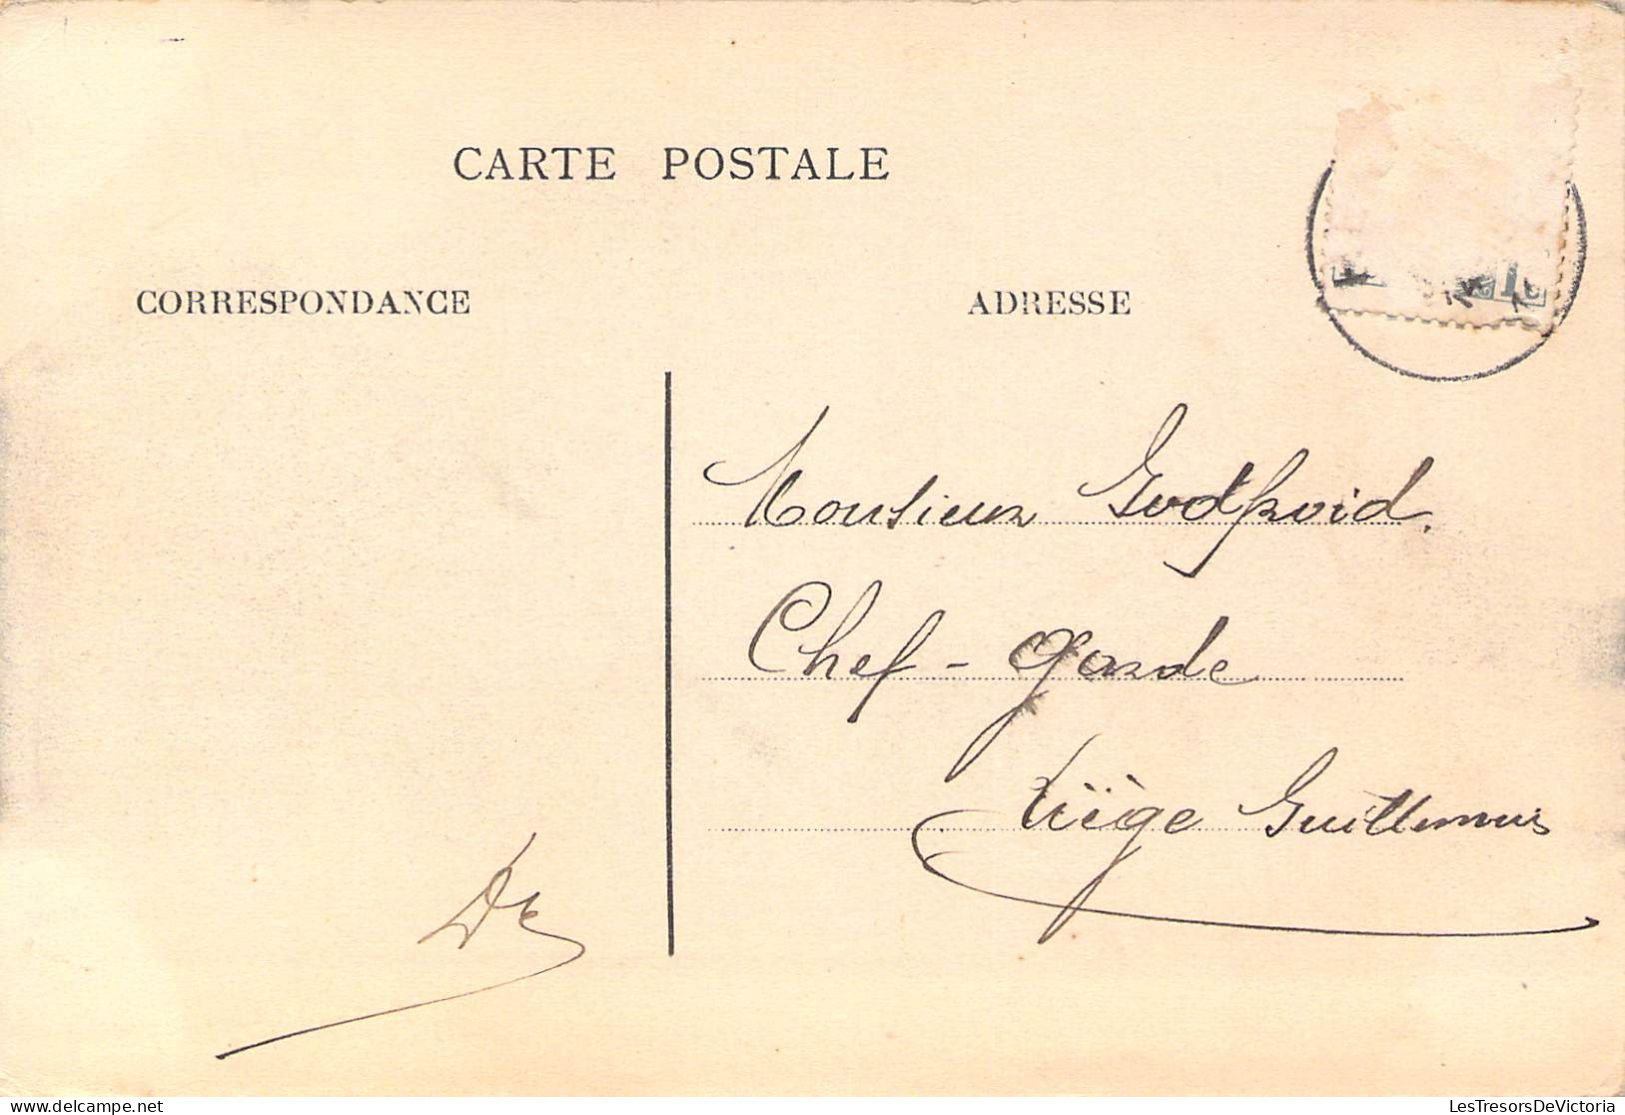 CARTE POSTALE
CORRESPONDANCE
ADRESSE
Monsieur Godfroid.
Chef-garde
Liège Guillemins
LesTresorsDeVictoria